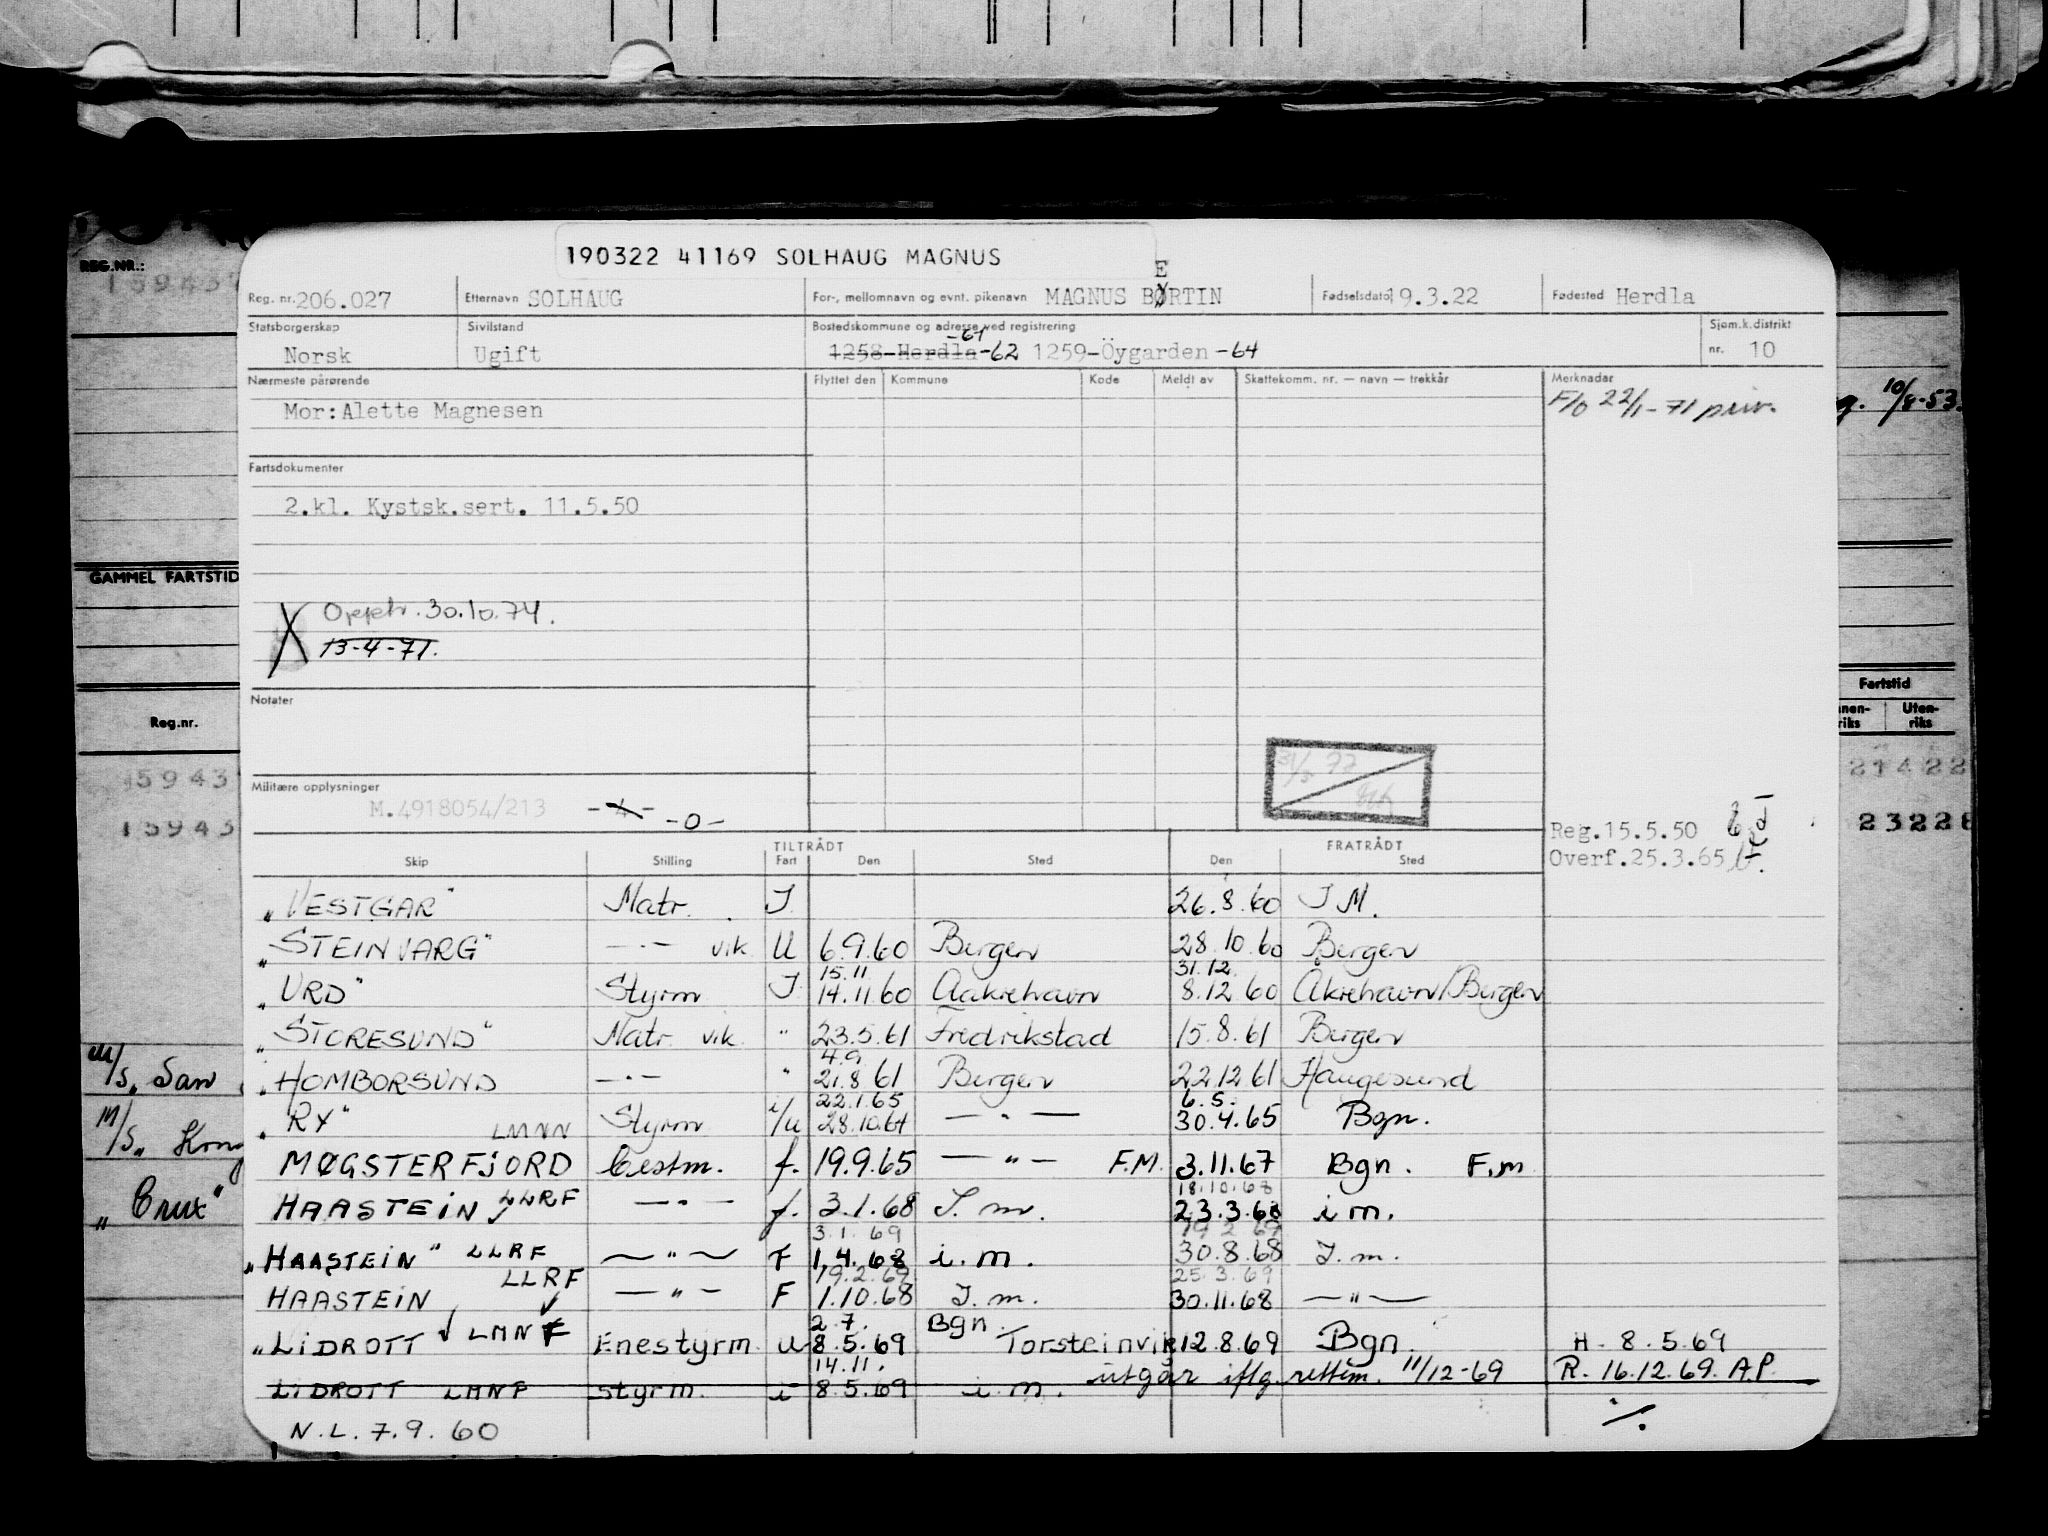 190322 41169 SOLHAUG MAGNUS
E
Reg. nr. 206.027 Etternavn SOLHAUG For-, mellomnavn og evnt. pikenavn MAGNUS BØRTIN Fødselsdato 19.3.22 Fødested Herdla
Statsborgerskap Sivilstand Bostedskommune og adresse ved registrering Sjøm.k.distrikt
-61
Norsk Ugift 1258-Herdla-62 1259-Öygarden-64 nr. 10
Nærmeste pårørende Flyttet den Kommune Kode Meldt av Skattekomm. nr. — navn — trekkår Merknadar
Mor: Alette Magnesen F/O 22/1-71 priv.
Fartsdokumenter
2.kl. Kystsk.sert. 11.5.50
Opptr. 30.10.74.
13-4-71.
Notater
Militære opplysninger
M.4918054/213 -4- -0-
Reg.15.5.50
Overf.25.3.65
TILTRÅDT FRATRÅDT
Skip Stilling Fart Den Sted Den Sted
"VESTGAR" Matr. I 26.8.60 I M.
"STEINVARG" —·— vik U 6.9.60 Bergen 28.10.60 Bergen
15.11 31.12.
"URD" Styrm I 14.11.60 Aakrehavn 8.12.60 Åkrehavn/Bergen
"STORESUND" Matr vik " 23.5.61 Fredrikstad 15.8.61 Bergen
4.9
"HOMBORSUND —·— " 21.8.61 Bergen 22.12.61 Haugesund
22.1.65 6.5.
"RY" LMNN Styrm i/u 28.10.64 — " — 30.4.65 Bgn.
MØGSTERFJORD Bestm. f. 19.9.65 — " — F.M. 3.11.67 Bgn. F.m
18.10.68
HAASTEIN LLRF — " — f. 3.1.68 I. m. 23.3.68 i m.
3.1.69 19.2.69
"HAASTEIN" LLRF — " — F 1.4.68 i.m. 30.8.68 I.m.
LLRF 19.2.69 25.3.69
HAASTEIN — " — F 1.10.68 I.m. 30.11.68 — " —
2.7. Bgn.
"LIDROTT LMNF Enestyrm. U 8.5.69 Torsteinvik 12.8.69 Bgn. H. 8.5.69
14.11. utgår iflg. rettim. 11/12-69 R. 16.12.69. A.P.
LIDROTT LMNF styrm. i 8.5.69 i.m.
N.L. 7.9.60 ./.
REG.NR.:
15943
GAMMEL FARTSTID
Reg.nr.
5943
15943
M/S. San
M/S. "Kong
"Crux"
10/8-53.
Fartstid
Uten-
riks
21422
2322